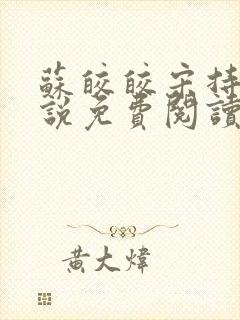 蘇皎皎宋持
說免費閱讀
黃大煒